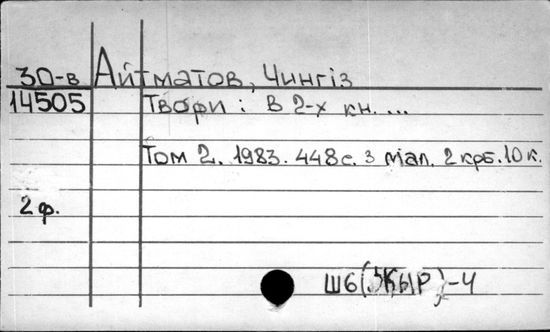 30-в Айтматов, Чингіз
14505 Твори : В 2-х кн. ...
Том 2. 1983. 448 с. з мал. 2 крб. 10 к.
2 ф.
Ш6( КЫР)-4